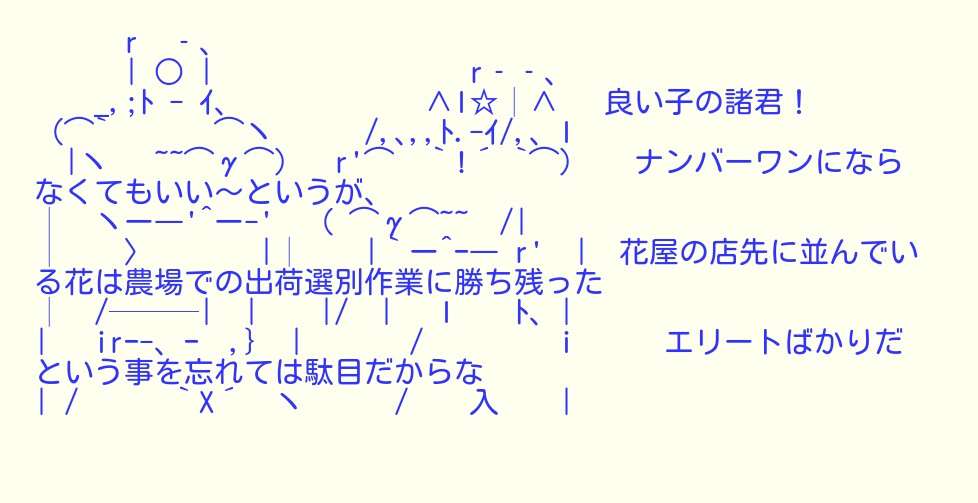 良い子の諸君！
ナンバーワンになら
なくてもいい～というが、
花屋の店先に並んでい
る花は農場での出荷選別作業に勝ち残った
エリートばかりだ
という事を忘れては駄目だからな